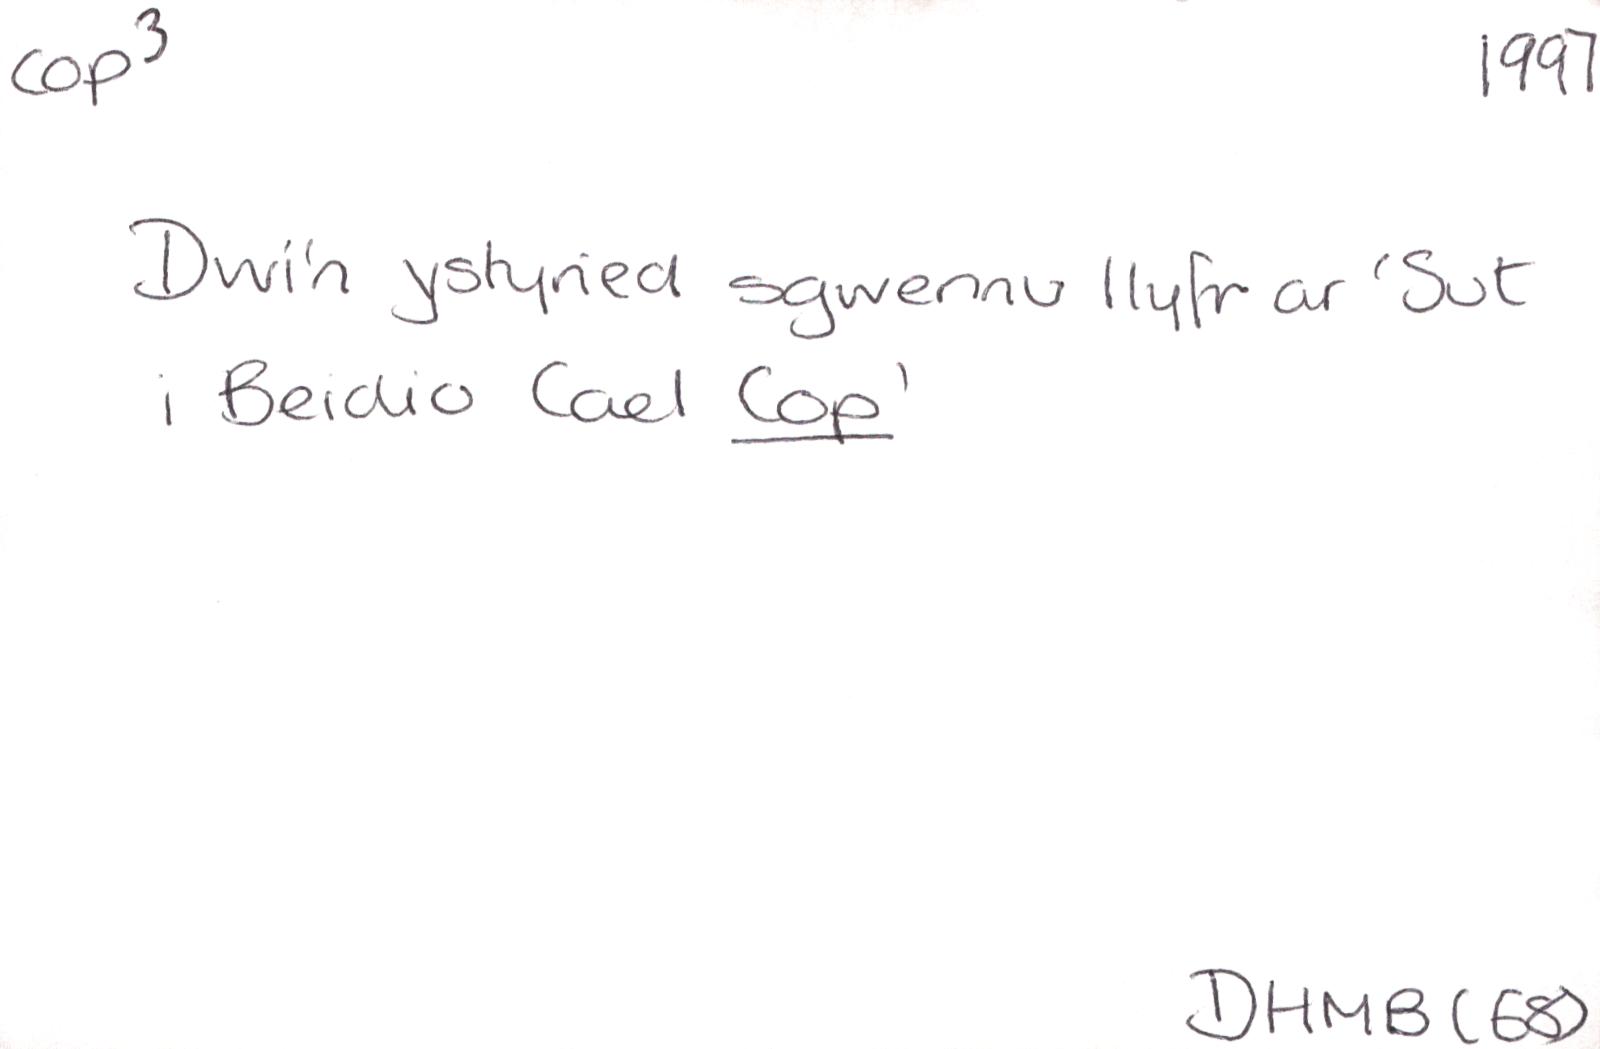 cop³ 1997
Dwi'n ystyried sgwennu llyfr ar 'Sut
i Beidio Cael Cop'
DHMB (68)